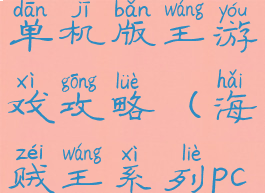 dān jī bǎn wáng yóu
单机版王游
xì gōng lüè hǎi
戏攻略（海
zéi wáng xì liè
贼王系列PC